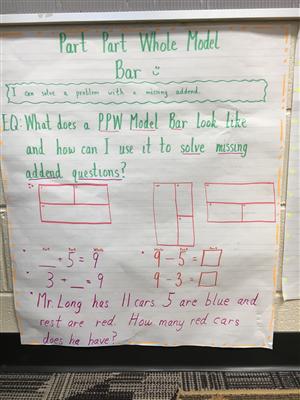 Part Part Whole Model
Bar
I can solve a problem with a missing addend.
EQ: What does a PPW Model Bar look like
and how can I use it to solve missing
addend questions?
Part Part Whole
__ + 5 = 9
3 + __ = 9
Whole Part Part
9 - 5 =
9 - 3 =
Mr. Long has 11 cars. 5 are blue and
rest are red. How many red cars
does he have?